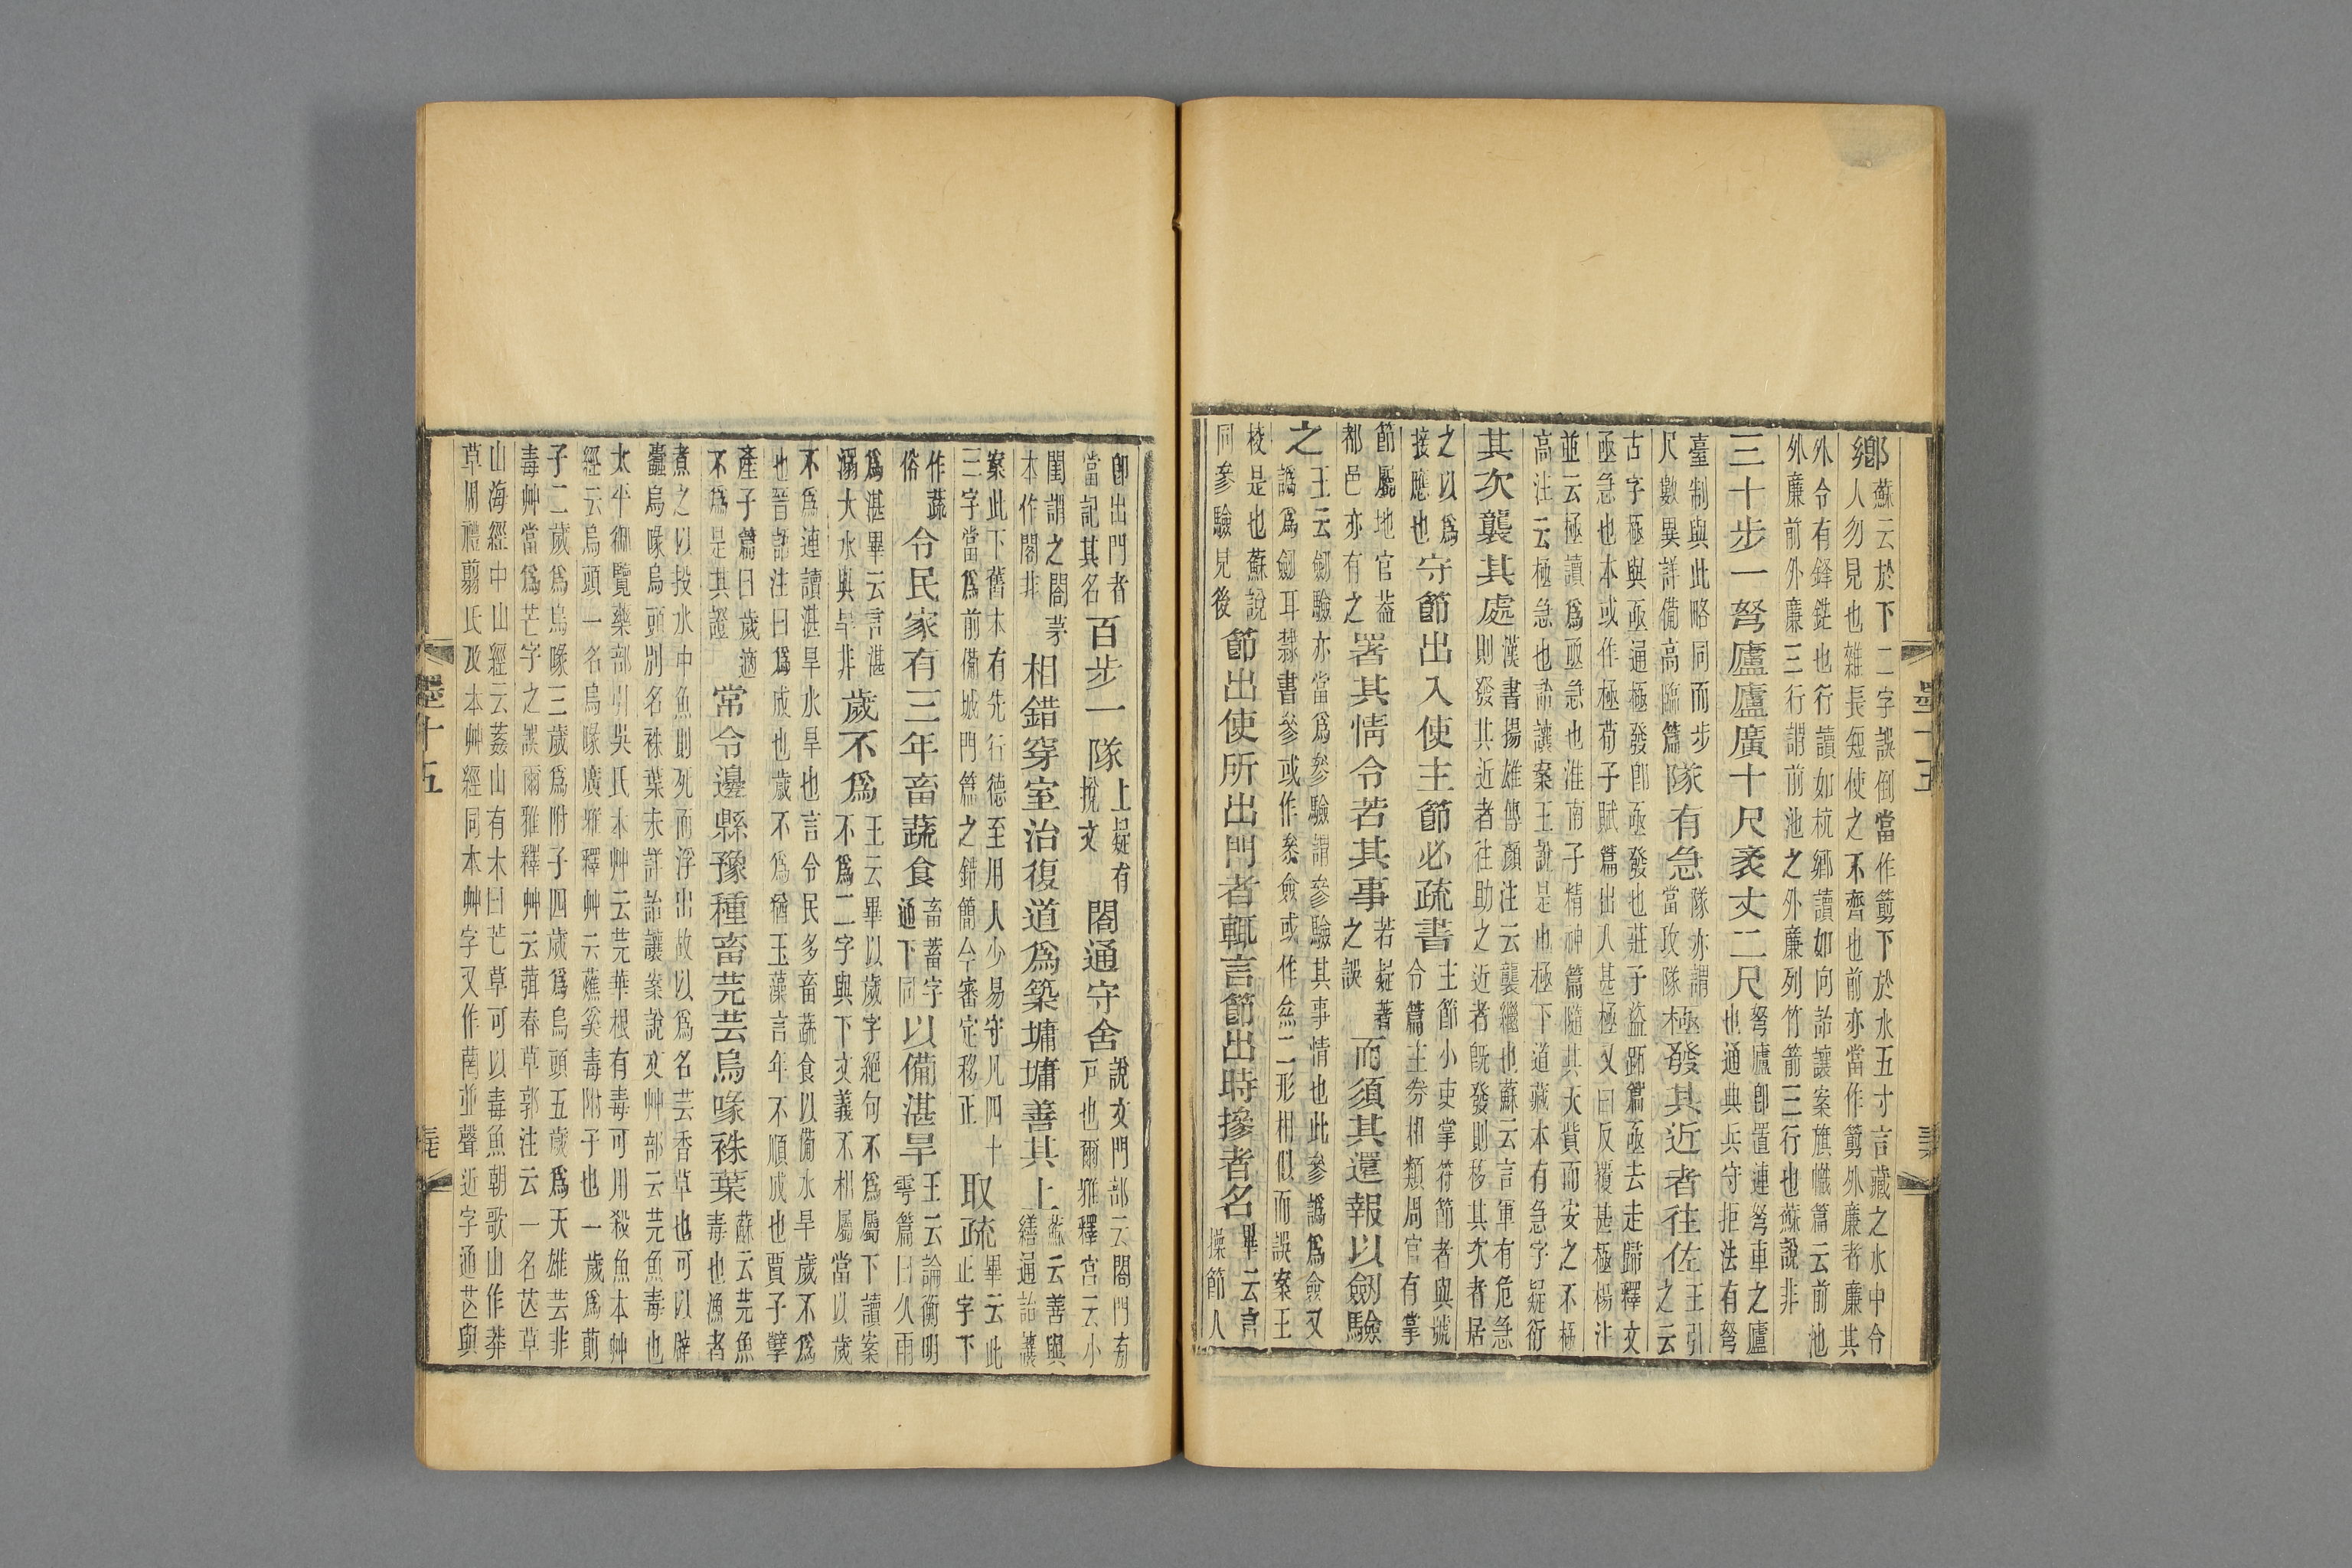 鄉
蘇云於下二字誤倒當作箭下於水五寸言藏之水中令
人勿見也雜長短使之不齊也前亦當作箭外廉者廉其
外令有鋒銳也行讀如杭鄉讀如向詒讓案旗幟篇云前池
外廉前外廉三行謂前池之外廉列竹箭三行也蘇說非
三十步一弩廬廬廣十尺袤丈二尺
弩廬卽置連弩車之廬
也通典兵守拒法有弩
臺制與此略同而步
尺數異詳備高臨篇
隊有急
隊亦謂
當攻隊
極發其近者往佐
王引
之云
古字極與亟通極發卽亟發也莊子盜跖篇亟去走歸釋文
亟急也本或作極荀子賦篇出入甚極又曰反覆甚極楊注
並云極讀爲亟急也淮南子精神篇隨其天貲而安之不極
高注云極急也詒讓案王說是也極下道藏本有急字疑衍
其次襲其處
漢書揚雄傳顏注云襲繼也蘇云言軍有危急
則發其近者往助之近者旣發則移其次者居
之以爲
接應也
守節出入使主節必疏書
主節小吏掌符節者與號
令篇主券相類周官有掌
節屬地官葢
都邑亦有之
署其情令若其事
若疑著
之誤
而須其還報以劒驗
之
王云劒驗亦當爲參驗謂參驗其事情也此參譌爲僉又
譌爲劒耳隸書參或作叅僉或作㑒二形相似而誤案王
校是也蘇說
同參驗見後
節出使所出門者輒言節出時摻者名
畢云言
操節人
墨十五
卽出門者
當記其名
百步一隊
上疑有
挩文
閤通守舍
說文門部云閤門旁
戶也爾雅釋宮云小
閨謂之閤茅
本作閣非
相錯穿室治復道爲築墉墉善其上
蘇云善與
繕通詒讓
案此下舊本有先行德至用人少易守凡四十
三字當爲前備城門篇之錯簡今審定移正
取疏
畢云此
正字下
作蔬
俗
令民家有三年畜蔬食
畜蓄字
通下同
以備湛旱
王云論衡明
雩篇曰久雨
爲湛畢云言湛
溺大水與旱非
歲不爲
王云畢以歲字絕句不爲屬下讀案
不爲二字與下文義不相屬當以歲
不爲連讀湛旱水旱也言令民多畜蔬食以備水旱歲不爲
也晉語注曰爲成也歲不爲猶玉藻言年不順成也賈子孽
產子篇曰歲適
不爲是其證
常令邊縣豫種畜芫芸烏喙袾葉
蘇云芫魚
毒也漁者
煮之以投水中魚則死而浮出故以爲名芸香草也可以辟
蠹烏喙烏頭別名袾葉未詳詒讓案說文艸部云芫魚毒也
太平御覽藥部引吳氏本艸云芫華根有毒可用殺魚本艸
經云烏頭一名烏喙廣雅釋艸云蘸奚毒附子也一歲爲萴
子二歲爲烏喙三歲爲附子四歲爲烏頭五歲爲天雄芸非
毒艸當爲芒字之誤爾雅釋艸云葞春草郭注云一名芒草
山海經中山經云葌山有木曰芒草可以毒魚朝歌山作莽
草周禮翦氏及本艸經同本艸字又作䓞並聲近字通芒與
墨十五